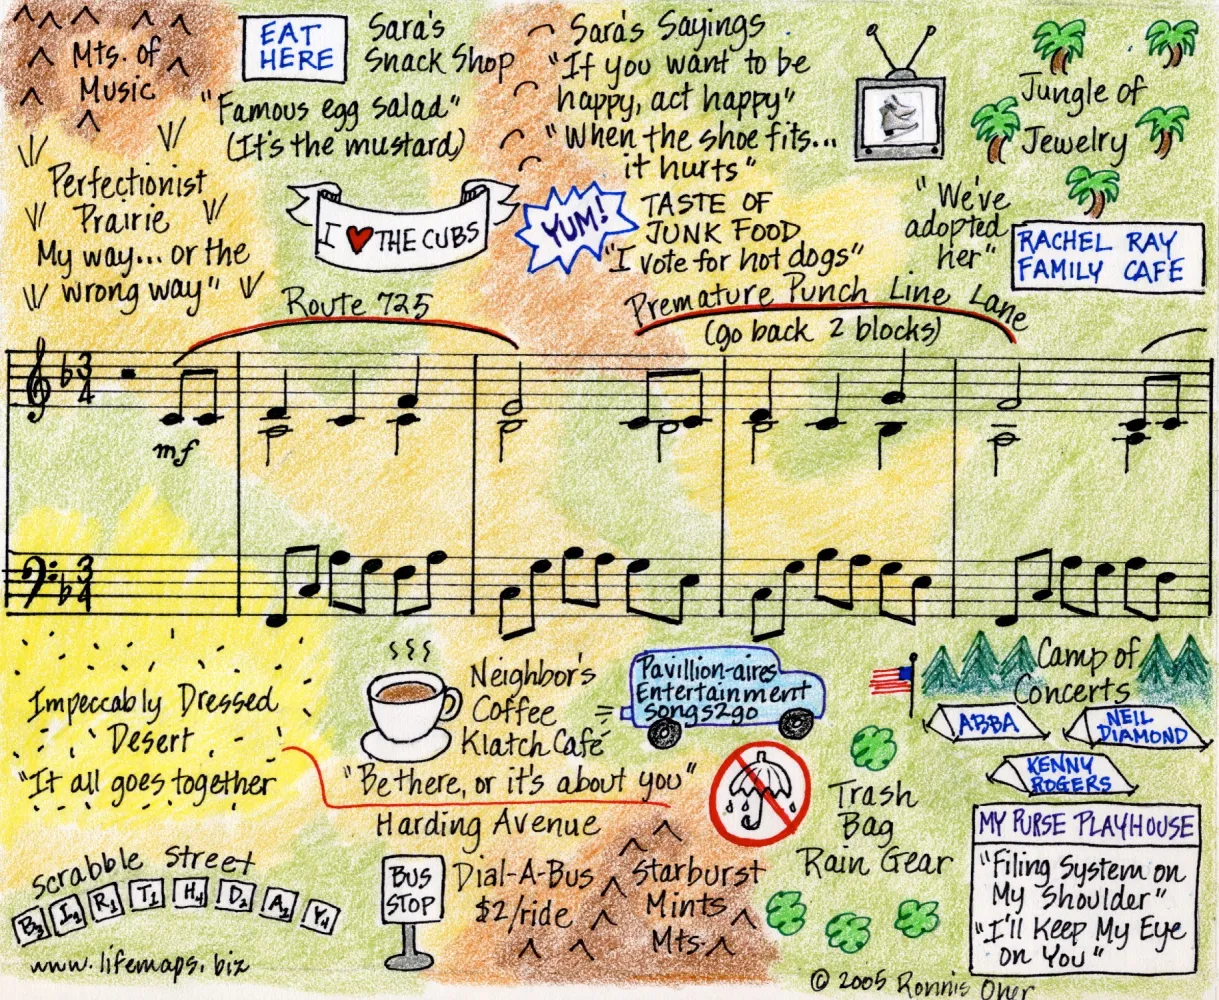 Mts. of
Music
EAT
HERE
Sara's
Snack Shop
"Famous egg salad"
(It's the mustard)
Sara's Sayings
"If you want to be
happy, act happy"
"When the shoe fits...
it hurts"
Jungle of
Jewelry
Perfectionist
Prairie
My way... or the
wrong way"
I THE CUBS
YUM!
TASTE OF
JUNK FOOD
"I vote for hot dogs"
"We've
adopted
her"
RACHEL RAY
FAMILY CAFE
Route 725
Premature Punch Line Lane
(go back 2 blocks)
3
4
mf
3
4
Impeccably Dressed
Desert
"It all goes together
Neighbor's
Coffee
Klatch Café
"Be there, or it's about you"
Harding Avenue
Pavillion-aires
Entertainment
songs2go
Camp of
Concerts
ABBA
NEIL
DIAMOND
KENNY
ROGERS
Trash
Bag
Rain Gear
MY PURSE PLAYHOUSE
"Filing System on
My Shoulder"
"I'll Keep My Eye
on You"
Scrabble Street
B3 I1 R1 T1 H4 D2 A1 Y4
www.lifemaps.biz
BUS
STOP
Dial-A-Bus
$2/ride
Starburst
Mints
Mts.
© 2005 Ronnis Oher